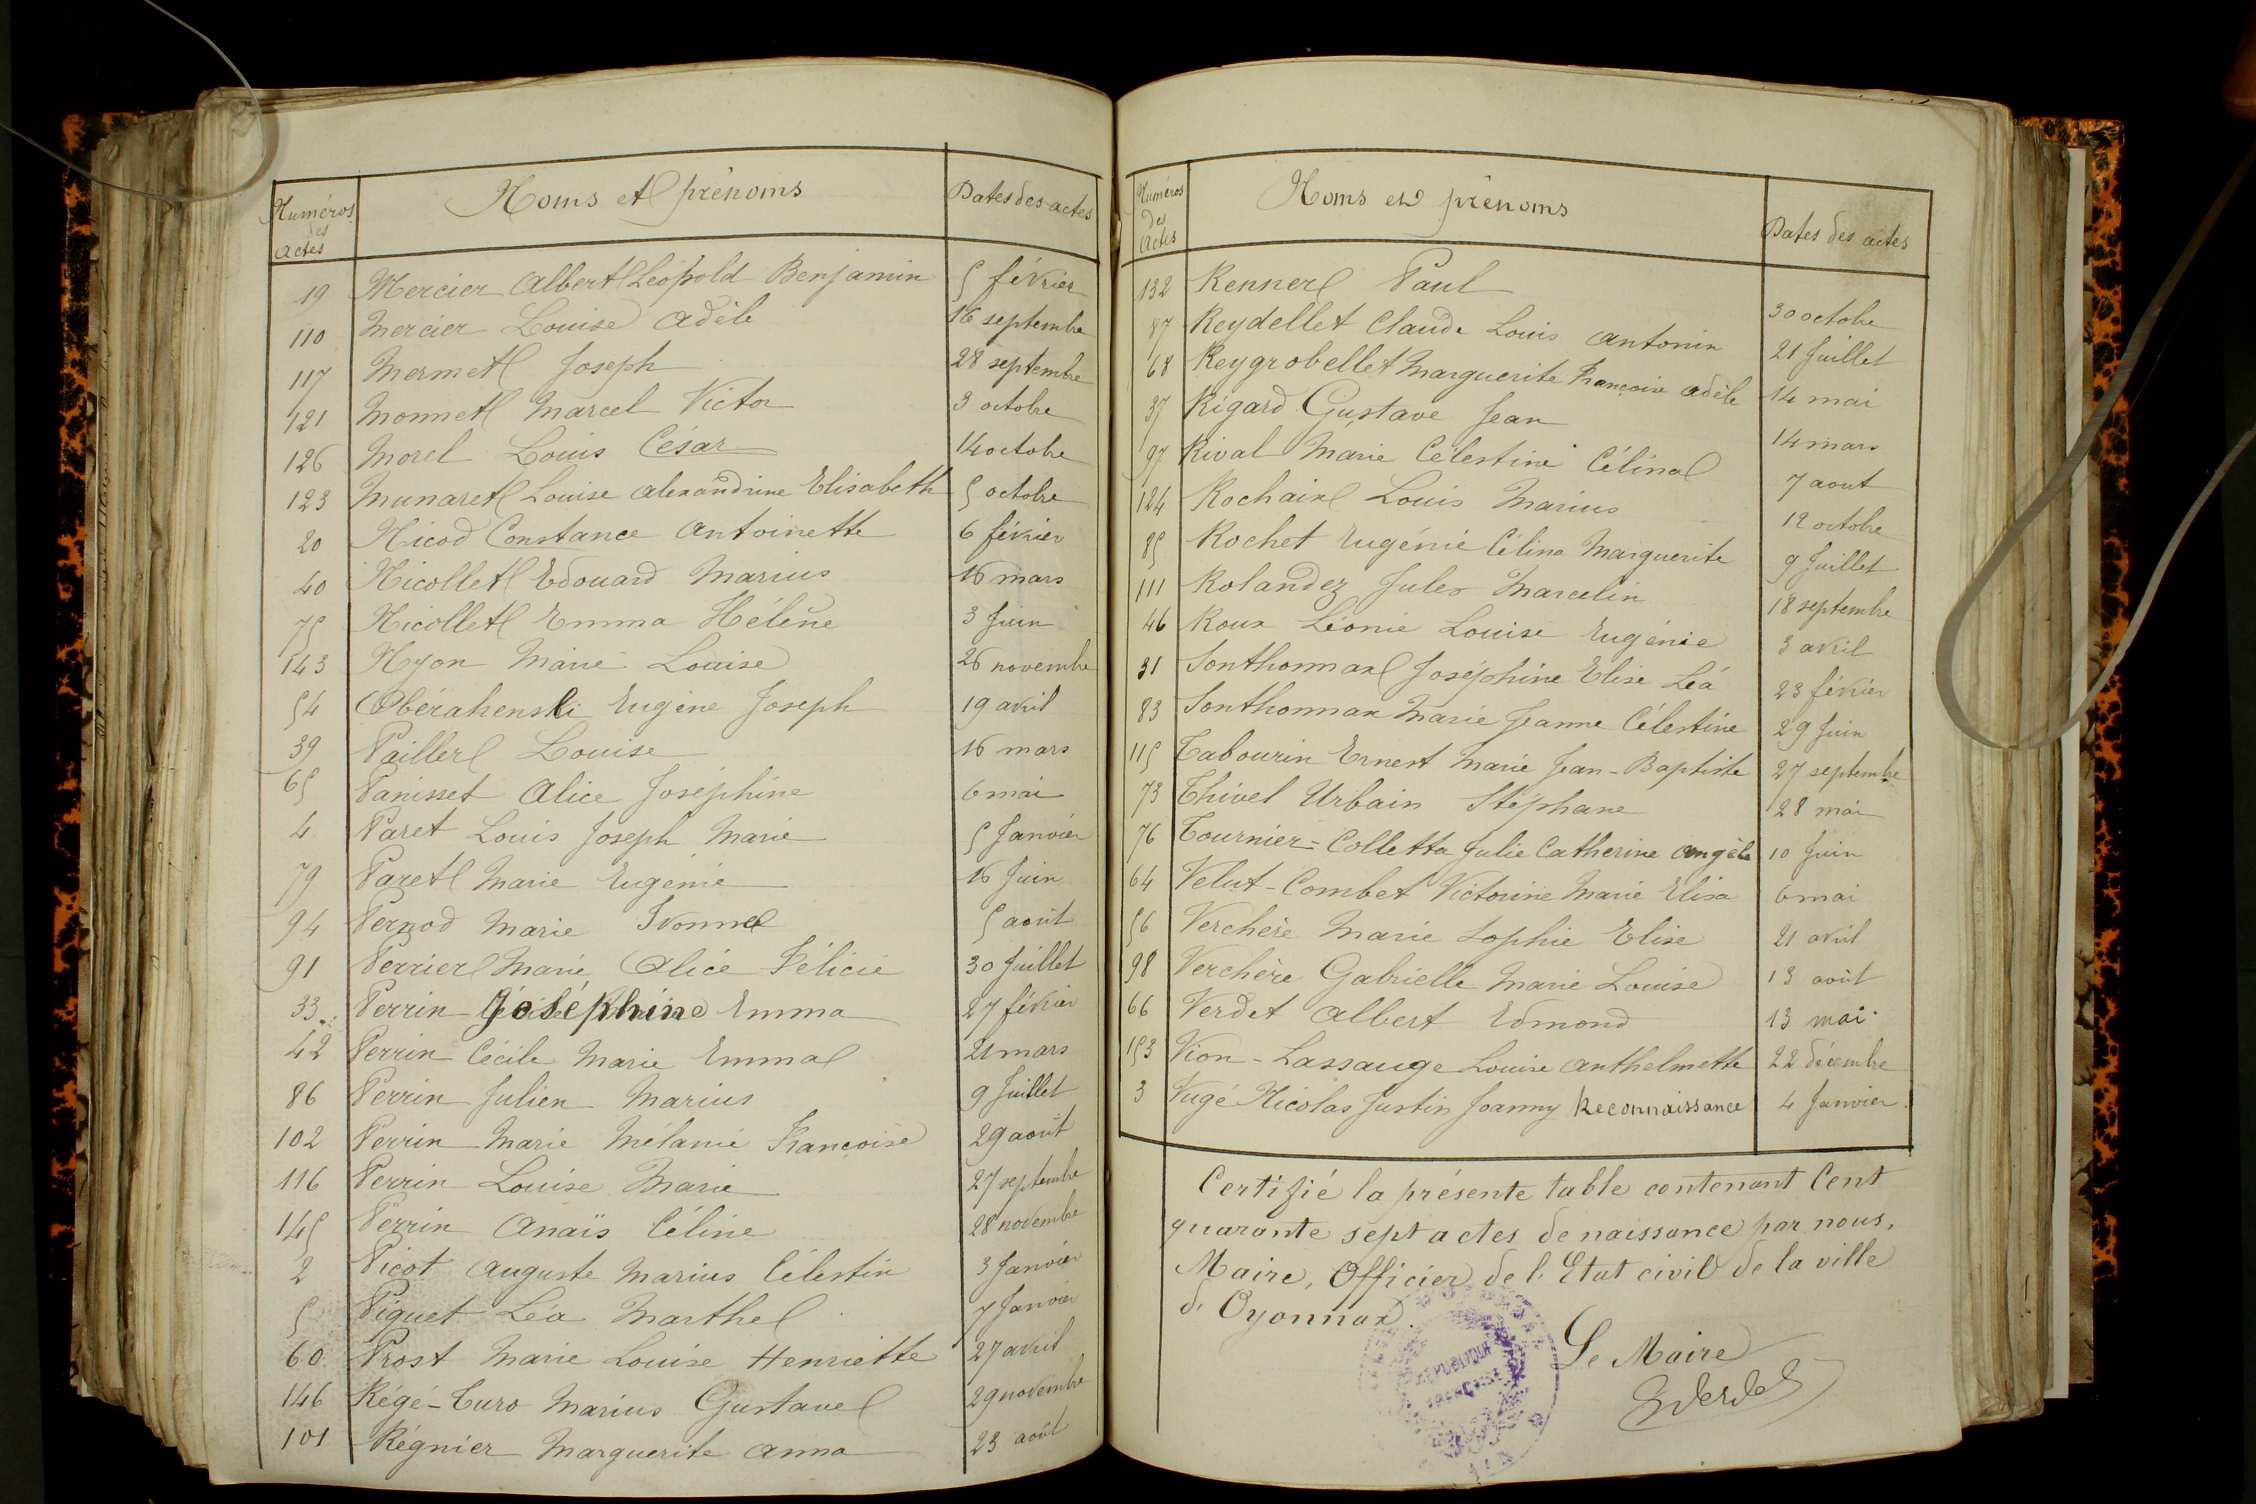 Numéros des Actes Noms et prénoms Dates des actes
19 Mercier Albert Léopold Benjamin 5 février
110 Mercier Louise Adèle 16 septembre
117 Mermet Joseph 28 septembre
121 Monnet Marcel Victor 3 octobre
126 Morel Louis César 14 octobre
123 Munaret Louise Alexandrine Elisabeth 5 octobre
20 Nicod Constance Antoinette 6 février
40 Nicollet Edouard Marius 16 mars
75 Nicollet Emma Hélène 3 Juin
143 Nyon Marie Louise 26 novembre
54 Obérahenski Eugène Joseph 19 avril
39 Pailler Louise 16 mars
65 Panisset Alice Joséphine 6 mai
4 Paret Louis Joseph Marie 5 Janvier
79 Paret Marie Eugénie 16 Juin
94 Pernod Marie Ivonne 5 août
91 Perrier Marie Alice Félicie 30 Juillet
33 Perrin Joséphine Emma 27 février
42 Perrin Cécile Marie Emma 21 mars
86 Perrin Julien Marius 9 Juillet
102 Perrin Marie Mélanie Françoise 29 août
116 Perrin Louise Marie 27 septembre
145 Perrin Anaïs Céline 28 novembre
2 Picot Auguste Marius Célestin 3 Janvier
5 Piquet Léa Marthe 7 Janvier
60 Prost Marie Louise Henriette 27 avril
146 Régé-Turo Marius Gustave 29 novembre
101 Régnier Marguerite Anna 23 août
Numéros des Actes Noms et prénoms Dates des actes
132 Renner Paul 30 octobre
87 Reydellet Claude Louis Antonin 21 Juillet
68 Reygrobellet Marguerite Françoise Adèle 14 mai
37 Rigard Gustave Jean 14 mars
97 Rival Marie Célestine Célina 7 aout
124 Rochaix Louis Marius 12 octobre
85 Rochet Eugénie Céline Marguerite 9 Juillet
111 Rolandez Jules Marcelin 18 septembre
46 Roux Léonie Louise Eugénie 3 avril
31 Sonthonnax Joséphine Elise Léa 23 février
83 Sonthonnax Marie Jeanne Célestine 29 Juin
115 Tabourin Ernest Marie Jean-Baptiste 27 septembre
73 Thivel Urbain Stéphane 28 mai
76 Tournier-Colletta Julie Catherine Angèle 10 Juin
64 Velut-Combet Victorine Marie Elisa 6 mai
56 Verchère Marie Sophie Elise 21 avril
98 Verchère Gabrielle Marie Louise 13 août
66 Verdet Albert Edmond 13 mai
153 Vion-Lassauge Louise Anthelmette 22 décembre
3 Vugé Nicolas Justin Joanny Reconnaissance 4 Janvier
Certifié la présente table contenant Cent
quarante sept actes de naissance par nous,
Maire, Officier de l'Etat civil de la ville
d'Oyonnax.
Le Maire
RÉPUBLIQUE
FRANÇAISE
AIN